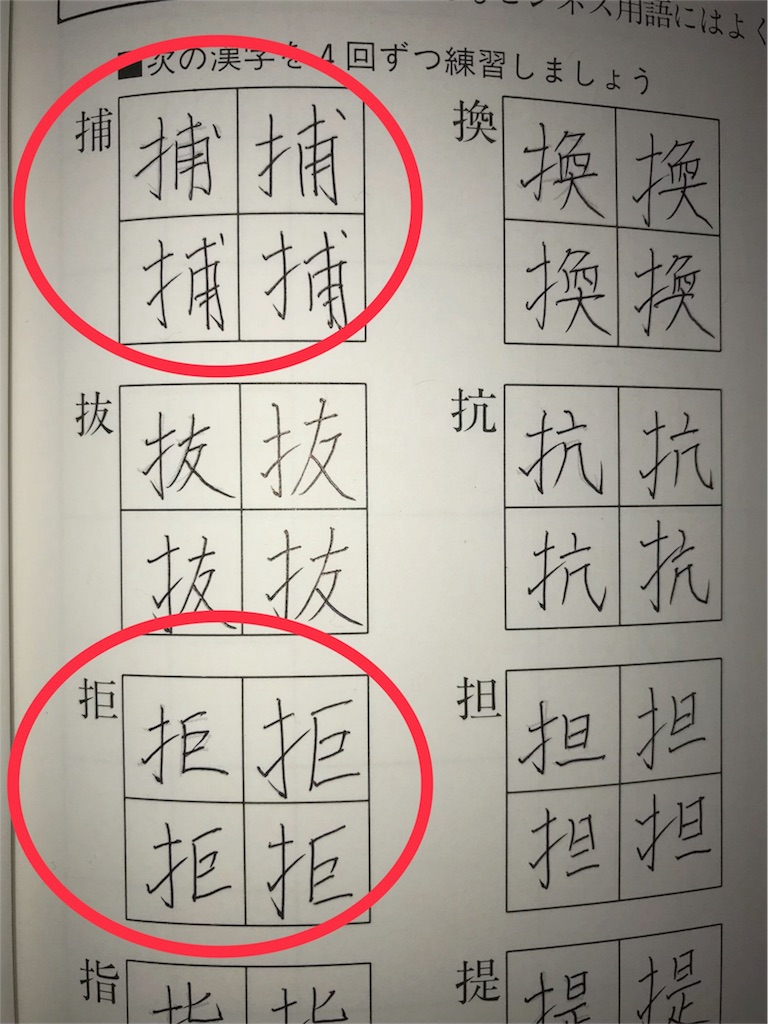 ネス用語にはよく
■次の漢字を4回ずつ練習しましょう
捕 捕 捕 換 換 換
捕 捕 換 換
抜 抜 抜 抗 抗 抗
抜 抜 抗 抗
拒 拒 拒 担 担 担
拒 拒 担 担
指 指 指 提 提 提